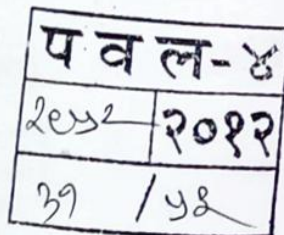 प व ल-४
२९५२ २०१२
३१ /